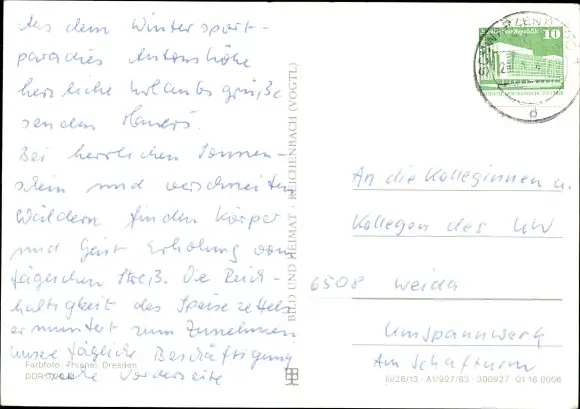 Aus dem Wintersport-
paradies Antonshöhe
herzliche Urlaubsgrüße
senden
Bei herrlichen Sonnen-
schein und verschneiten
Wäldern finden Körper
und Geist Erholung vom
täglichen Streß. Die Reich-
haltigkeit des Speisezettels
ermuntert zum Zunehmen
unsere tägliche Beschäftigung
siehe Vorderseite
Farbfoto: Thienel, Dresden
DDR
BILD UND HEIMAT · REICHENBACH (VOGTL)
10
An die Kolleginnen u.
Kollegen des UW
6508 Weida
Umspannwerk
Am Schafturm
III/26/13 · A1/927/83 · 300927 01 16 0006